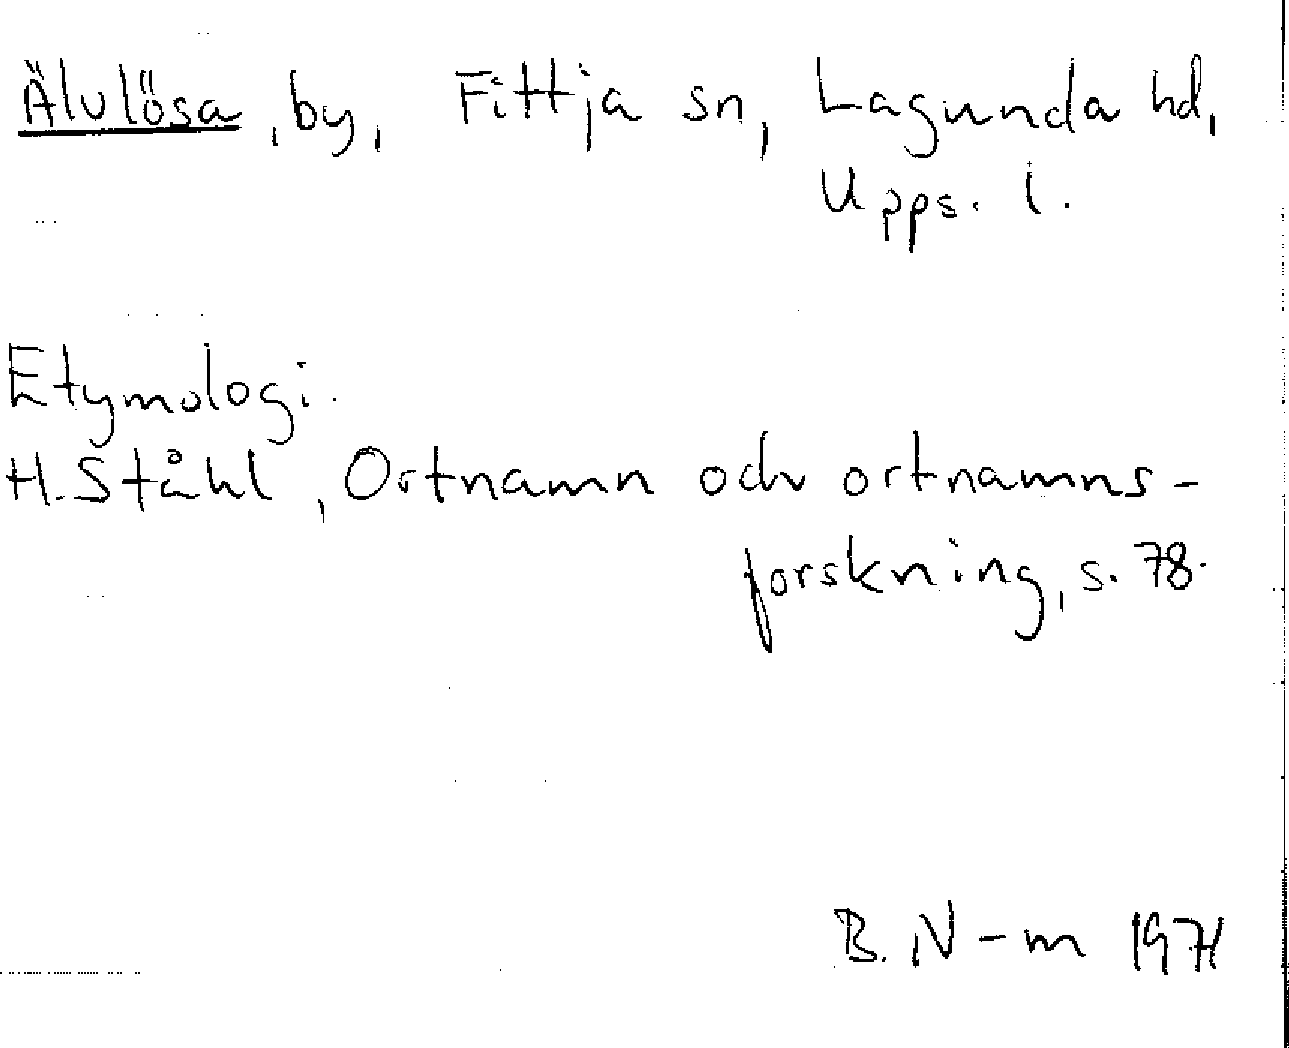 Älvlösa, by, Fittja sn, Lagunda hd,
Upps. l.
Etymologi.
H. Ståhl, Ortnamn och ortnamns-
forskning, s. 78.
B. N-m 1971